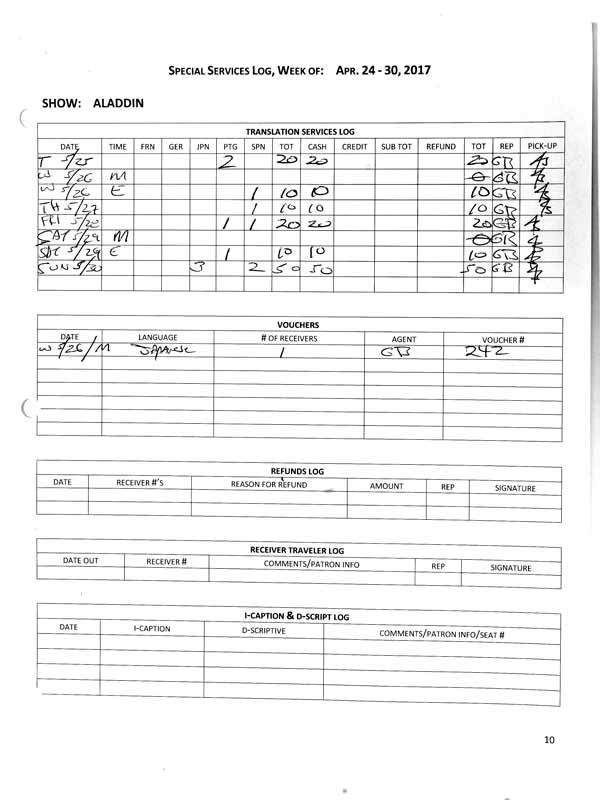 SPECIAL SERVICES LOG, WEEK OF: APR. 24 - 30, 2017
SHOW: ALADDIN
TRANSLATION SERVICES LOG
DATE TIME FRN GER JPN PTG SPN TOT CASH CREDIT SUB TOT REFUND TOT REP PICK-UP
T 5/25 2 20 20 20 GB
W 5/26 M 0 GB
W 5/26 E 1 10 10 10 GB
TH 5/27 1 10 10 10 GB
FRI 1 1 20 20 20 GB
SAT 5/29 M 0 GB
SAT 5/29 E 1 10 10 10 GB
SUN 5/30 3 2 50 50 50 GB
VOUCHERS
DATE LANGUAGE # OF RECEIVERS AGENT VOUCHER #
W 5/26/M Japanese 1 GB 242
REFUNDS LOG
DATE RECEIVER #'S REASON FOR REFUND AMOUNT REP SIGNATURE
RECEIVER TRAVELER LOG
DATE OUT RECEIVER # COMMENTS/PATRON INFO REP SIGNATURE
I-CAPTION & D-SCRIPT LOG
DATE I-CAPTION D-SCRIPTIVE COMMENTS/PATRON INFO/SEAT #
10